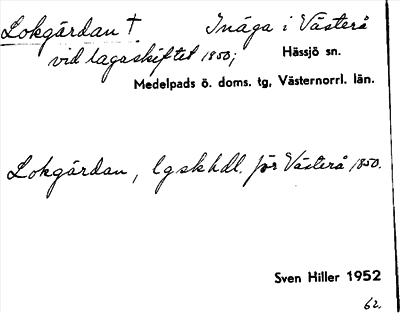 Lokgårdan † Inäga i Västerå
vid lagaskiftet 1850; Hässjö sn.
Medelpads ö. doms. tg, Västernorrl. län.
Lokgårdan, lgskhdl. för Västerå 1850.
Sven Hiller 1952
62.